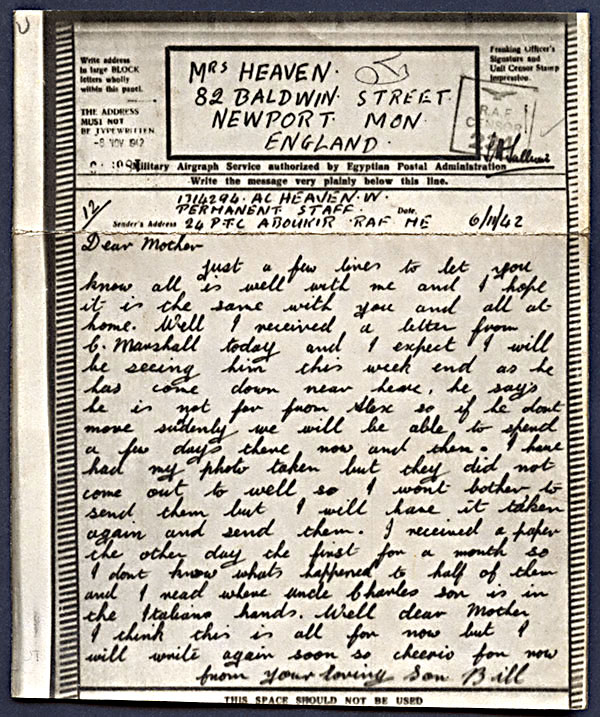 Write address
in large BLOCK
letters wholly
within this panel.
THE ADDRESS
MUST NOT
BE TYPEWRITTEN
-8 NOV 1942
MRS HEAVEN.
82 BALDWIN. STREET.
NEWPORT MON
ENGLAND.
Franking Officer's
Signature and
Unit Censor Stamp
Impression.
R.A.F
CENSOR
Military Airgraph Service authorized by Egyptian Postal Administration
Write the message very plainly below this line.
12
1714294. AC HEAVEN. W.
PERMANENT STAFF
Sender's Address 24 P.T.C ABOUKIR RAF ME
Date. 6/11/42
Dear Mother
Just a few lines to let you
know all is well with me and I hope
it is the same with you and all at
home. Well I received a letter from
C. Marshall today and I expect I will
be seeing him this week end as he
has come down near heare, he says
he is not far from Alex so if he dont
move sudenly we will be able to spend
a few days there now and then. I have
had my photo taken but they did not
come out to well so I wont bother to
send them but I will have it taken
again and send them. I received a paper
the other day the first for a month so
I dont know whats happened to half of them
and I read where uncle Charles son is in
the Italians hands. Well dear Mother
I think this is all for now but I
will write again soon so cheerio for now
from your loving Son Bill
THIS SPACE SHOULD NOT BE USED